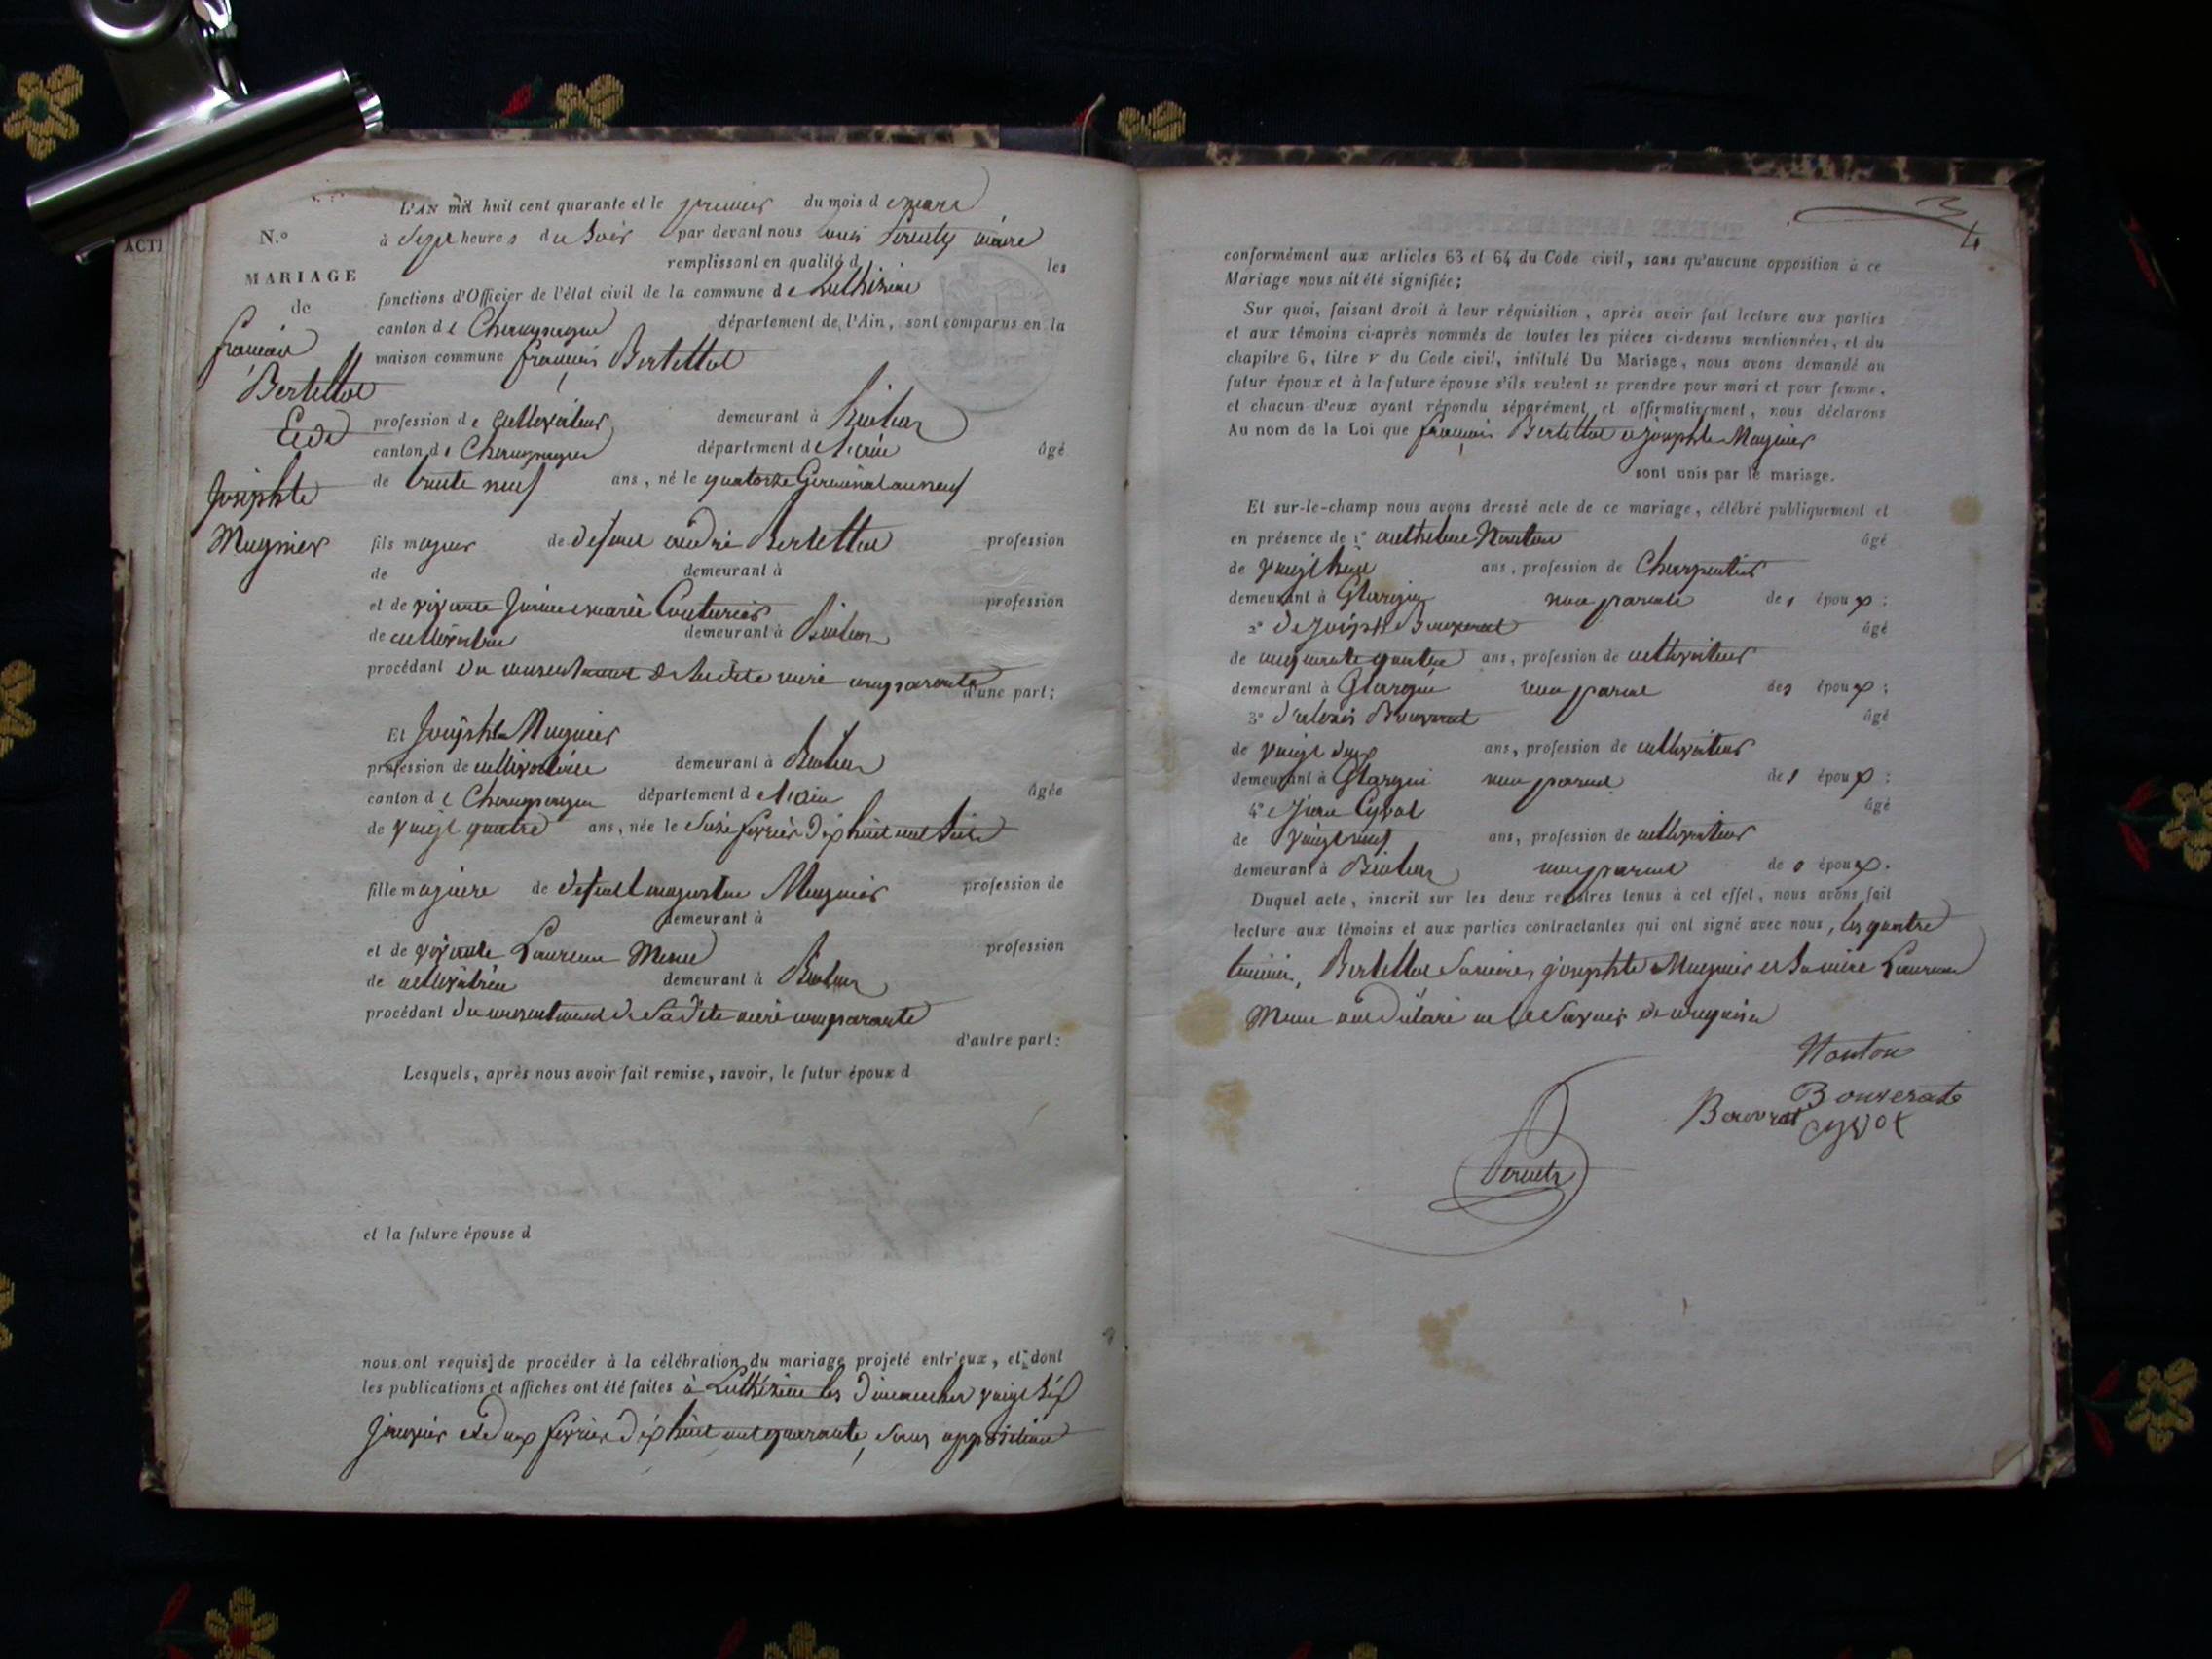 ACTI
L'AN mil huit cent quarante et le premier du mois de mars
N.º à Sept heures du Soir par devant nous maire
remplissant en qualité d les
MARIAGE
de
fonctions d'Officier de l'état civil de la commune de Luthézieu
canton de Champagne département de l'Ain, sont comparus en la
maison commune françois Bertettot
françois
Bertettot
Et de
Josephte
Mugnier
profession de cultivateur demeurant à
canton de Champagne département de l'ain âgé
de trente neuf ans, né le quatorze Germinal an neuf
fils majeur de defunt andré Bertettot profession
de demeurant à
et de vivante marie Couturier profession
de cultivatrice demeurant à
procédant du consentement de sadite mère comparante
d'une part;
Et Josephte Mugnier
profession de cultivatrice demeurant à
canton de Champagne département de l'ain âgée
de vingt quatre ans, née le février dix huit cent Seize
fille majeure de defunt Mugnier profession de
demeurant à
et de vivante profession
de cultivatrice demeurant à
procédant du consentement de Sadite mère comparante
d'autre part:
Lesquels, après nous avoir fait remise, savoir, le futur époux d
et la future épouse d
nous ont requis de procéder à la célébration du mariage projeté entr'eux, et dont
les publications et affiches ont été faites à Luthézieu les dimanches vingt Six
janvier et deux février dix huit cent quarante, sans opposition
conformément aux articles 63 et 64 du Code civil, sans qu'aucune opposition à ce
Mariage nous ait été signifiée;
Sur quoi, faisant droit à leur réquisition, après avoir fait lecture aux parties
et aux témoins ci-après nommés de toutes les pièces ci-dessus mentionnées, et du
chapitre 6, titre v du Code civil, intitulé Du Mariage, nous avons demandé au
futur époux et à la future épouse s'ils veulent se prendre pour mari et pour femme,
et chacun d'eux ayant répondu séparément et affirmativement, nous déclarons
Au nom de la Loi que françois Bertettot et josephte Mugnier
sont unis par le mariage.
Et sur-le-champ nous avons dressé acte de ce mariage, célébré publiquement et
en présence de 1º anthelme Nanton âgé
de vingt huit ans, profession de Charpentier
demeurant à non parent des époux:
2º De joseph Bouverat âgé
de cinquante quatre ans, profession de cultivateur
demeurant à non parent des époux;
3º Bouverat âgé
de vingt deux ans, profession de cultivateur
demeurant à non parent des époux:
4º âgé
de vingt neuf ans, profession de cultivateur
demeurant à non parent des époux.
Duquel acte, inscrit sur les deux registres tenus à cet effet, nous avons fait
lecture aux témoins et aux parties contractantes qui ont signé avec nous, les quatre
temoins, Bertettot Sa mere, josephte Mugnier et Sa mère
ont déclaré ne le Savoir de ce requis
Nanton
Bouverat